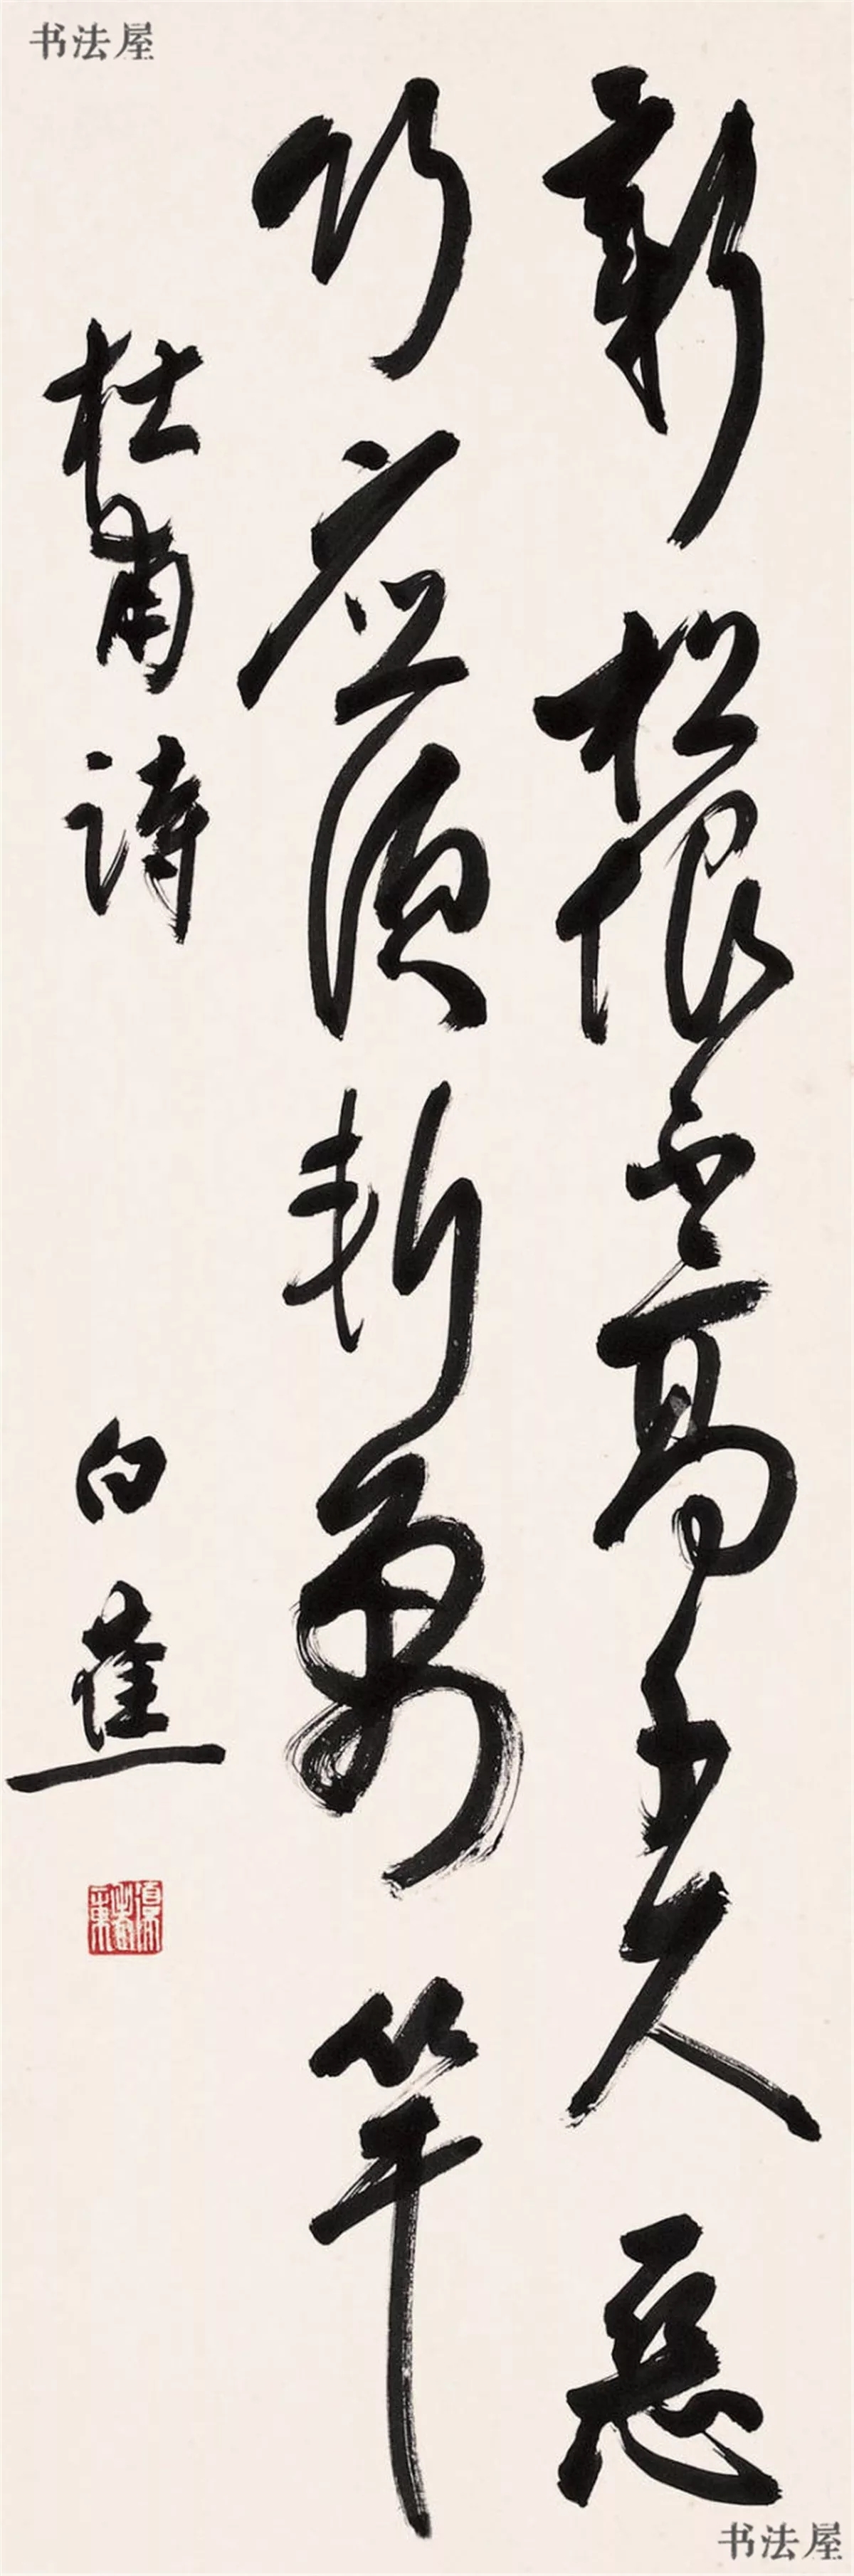 书法屋
新松恨不高千尺惡
竹应須斬萬竿
杜甫詩
白蕉
书法屋